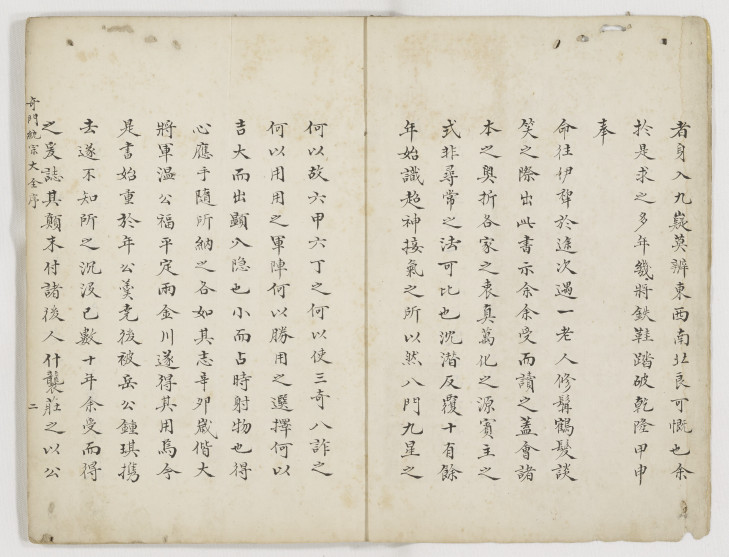 者身入九嶷莫辨東西南北良可慨也余
於是求之多年幾將鉄鞋踏破乾隆甲申
奉
命往伊犂於途次遇一老人修髯鶴髮談
笑之際出此書示余余受而讀之蓋會諸
本之奥折各家之衷真萬化之源實主之
式非尋常之法可比也沉潛反覆十有餘
年始識超神接氣之所以然八門九星之
何以故六甲六丁之何以使三奇八詐之
何以用用之軍陣何以勝用之選擇何以
吉大而出顯入隐也小而占時射物也得
心應手隨所納之各如其志辛夘歲偕大
將軍温公福平定兩金川遂得其用焉今
是書始重於年公羹尭後被岳公鍾琪擕
去遂不知所之沉没已數十年余受而得
之爰誌其顛末付諸後人什襲莊之以公
奇門統宗大全序
二